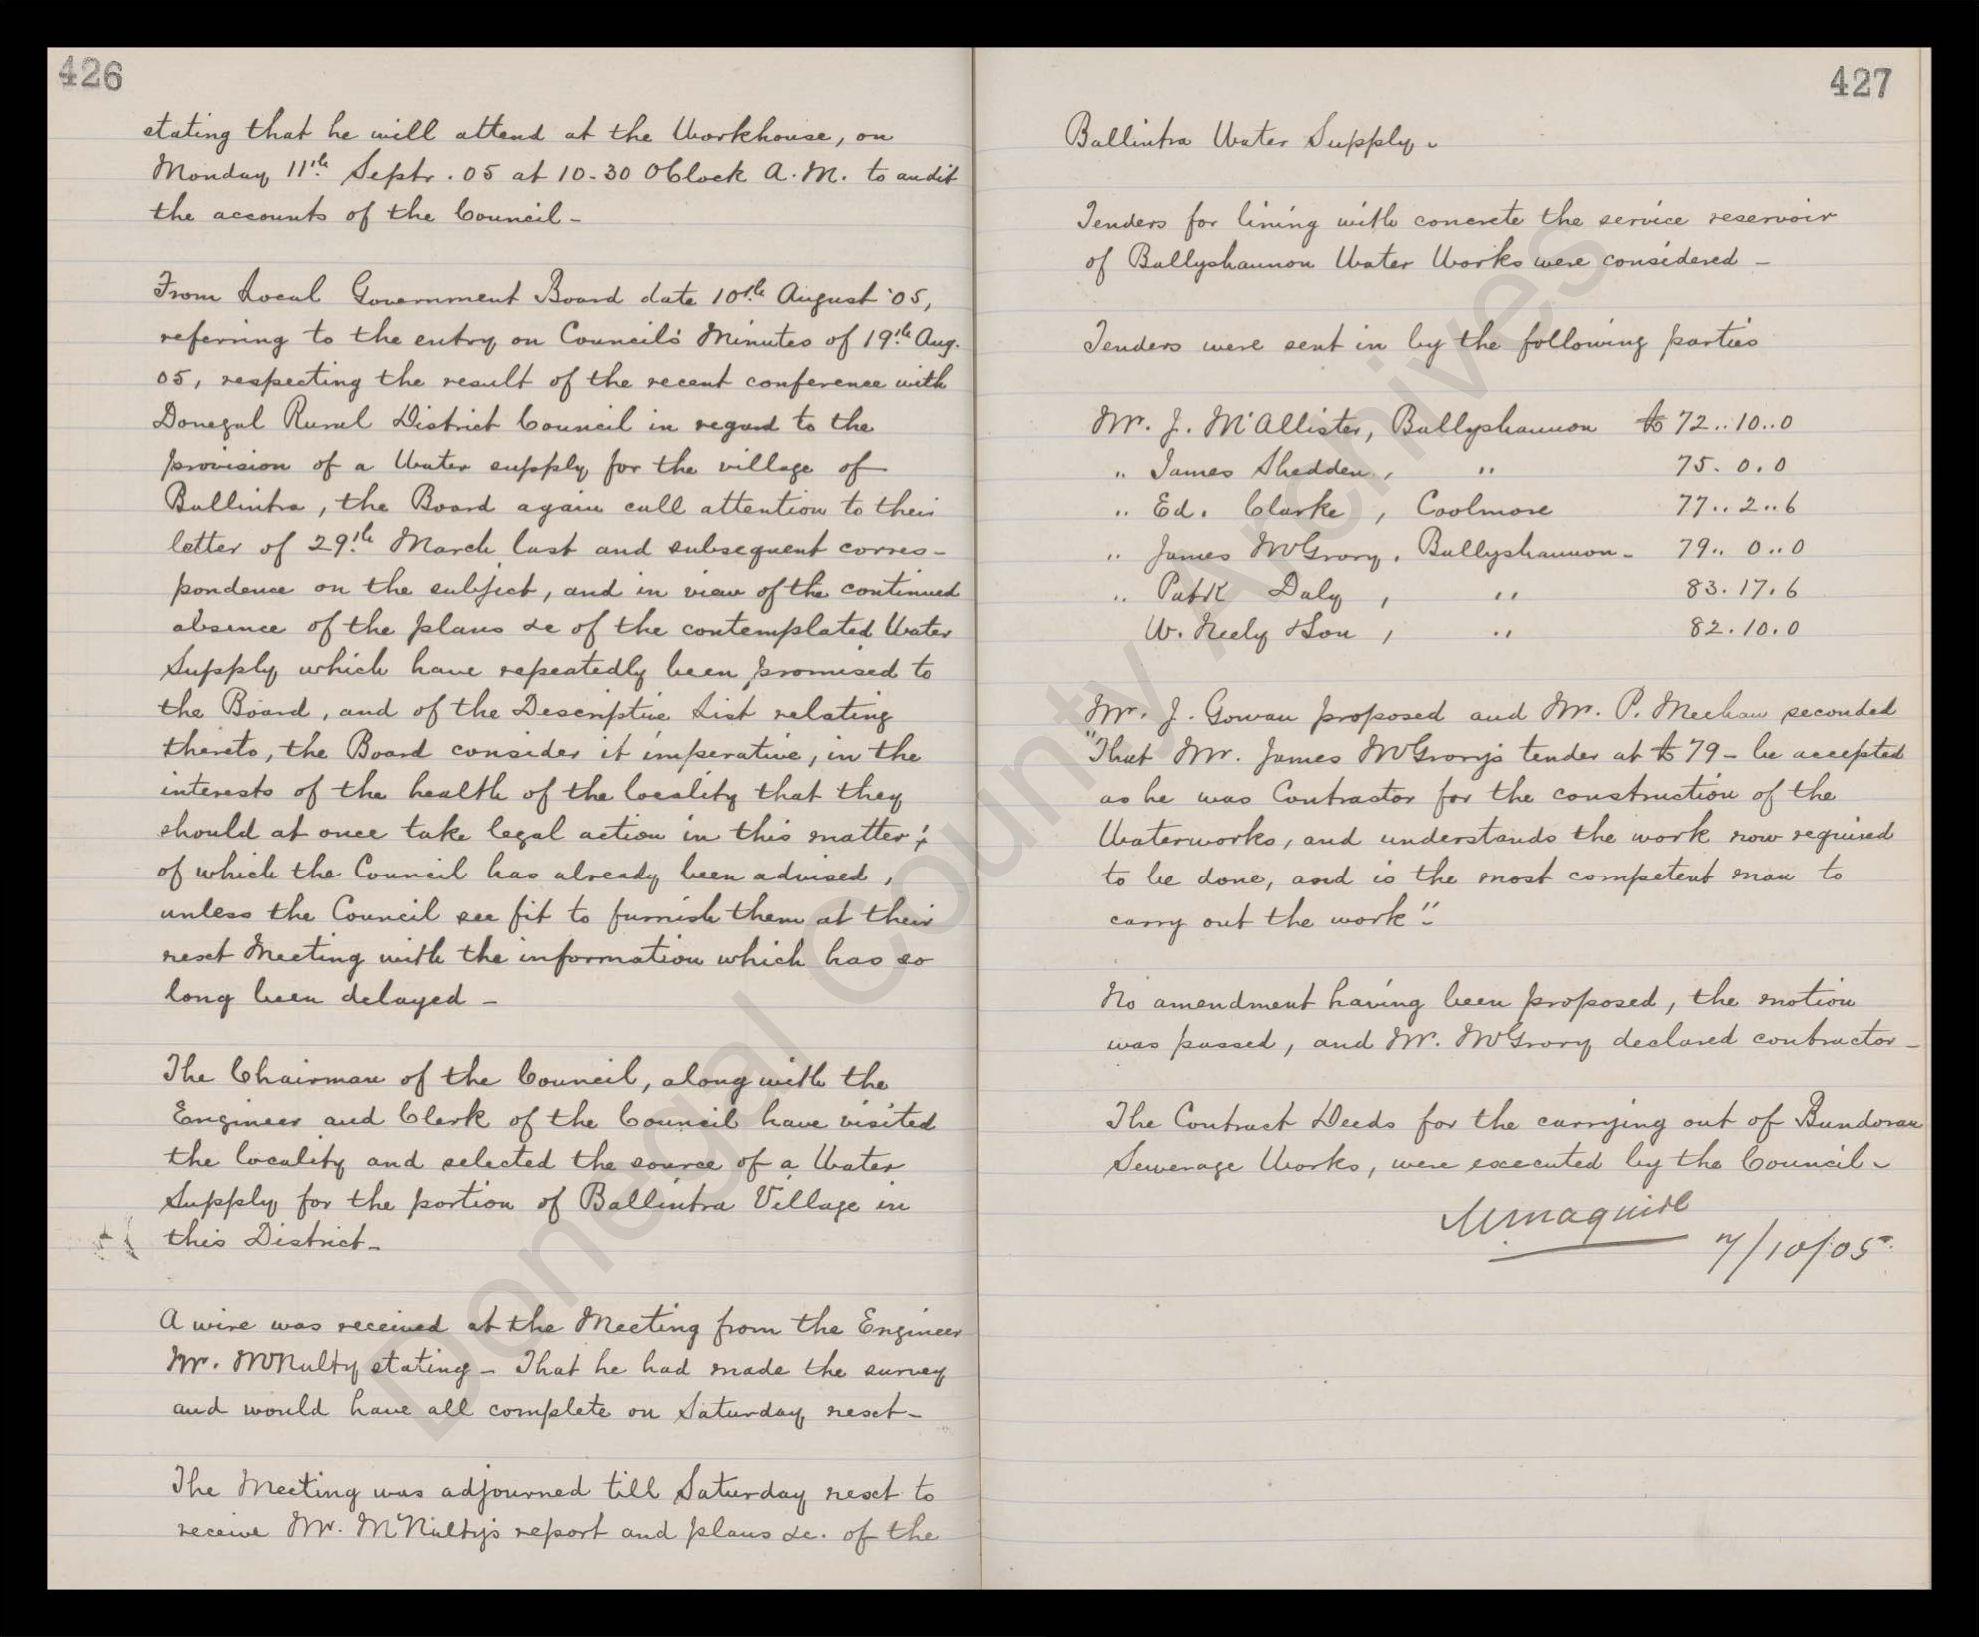 426
stating that he will attend at the Workhouse, on
Monday 11th Septr. 05 at 10-30 OClock A.M. to audit
the accounts of the Council -
From Local Government Board date 10th August '05,
referring to the entry on Council's Minutes of 19th Aug.
05, respecting the result of the recent conference with
Donegal Rural District Council in regard to the
provision of a Water supply for the village of
Ballintra, the Board again call attention to their
letter of 29th March last and subsequent corres-
pondence on the subject, and in view of the continued
absence of the plans &c of the contemplated Water
Supply which have repeatedly been promised to
the Board, and of the Descriptive List relating
thereto, the Board consider it imperative, in the
interests of the health of the locality that they
should at once take legal action in this matter;
of which the Council has already been advised,
unless the Council see fit to furnish them at their
next Meeting with the information which has so
long been delayed -
The Chairman of the Council, along with the
Engineer and Clerk of the Council have visited
the locality and selected the source of a Water
Supply for the portion of Ballintra Village in
this District -
A wire was received at the Meeting from the Engineer
Mr. McNulty stating - That he had made the survey
and would have all complete on Saturday next -
The Meeting was adjourned till Saturday next to
receive Mr. McNulty's report and plans &c. of the
427
Ballintra Water Supply -
Tenders for lining with concrete the service reservoir
of Ballyshannon Water Works were considered -
Tenders were sent in by the following parties
Mr. J. McAllister, Ballyshannon £72..10..0
" James Shedden, " 75.0.0
" Ed. Clarke, Coolmore 77..2..6
" James McGrory, Ballyshannon - 79..0..0
" Patk Daly, " 83.17.6
W. Neely & Son, " 82.10.0
Mr. J. Gowan proposed and Mr. P. Meehan seconded
"That Mr. James McGrory's tender at £79 - be accepted
as he was Contractor for the construction of the
Waterworks, and understands the work now required
to be done, and is the most competent man to
carry out the work" -
No amendment having been proposed, the motion
was passed, and Mr. McGrory declared contractor -
The Contract Deeds for the carrying out of Bundoran
Sewerage Works, were executed by the Council -
Maguire
7/10/05
Donegal County Archives